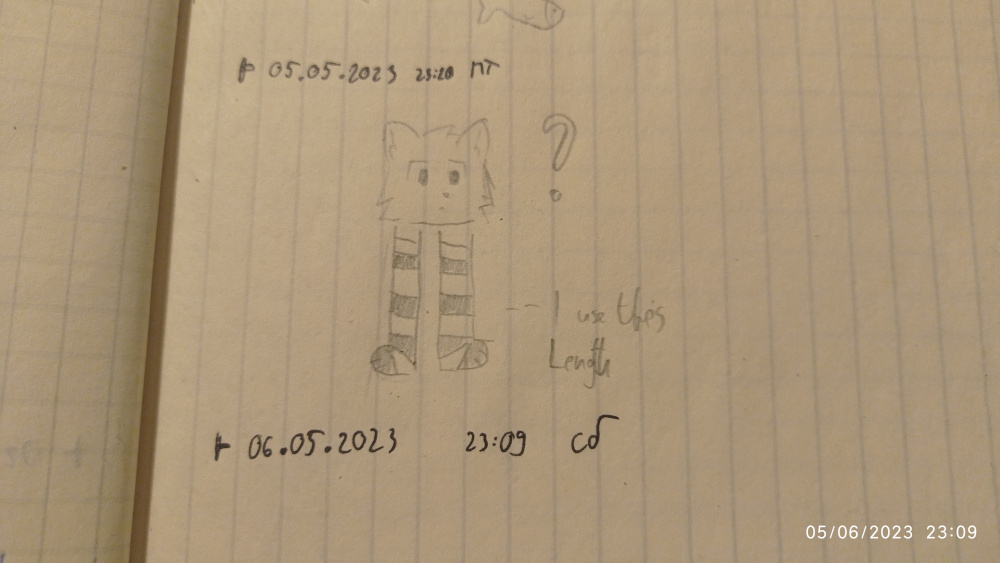 05.05.2023 23:20 ПТ
?
I use this
Length
06.05.2023 23:09 сб
05/06/2023 23:09